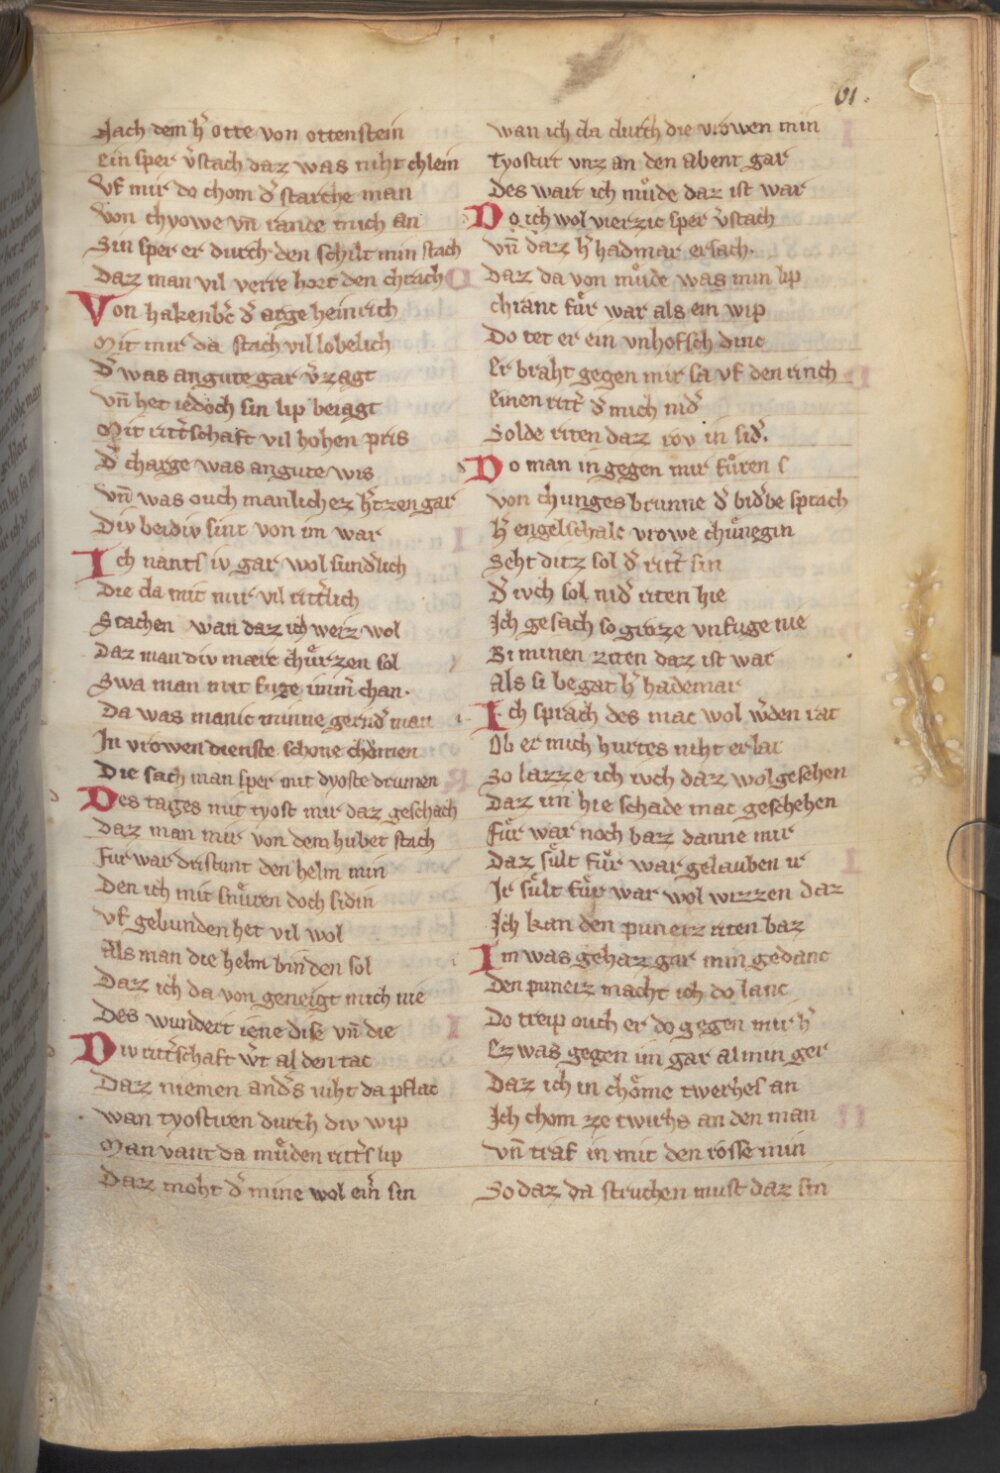 61.
Nach dem h̄ otte von ottenstein
Ein sper v̄stach daz was niht chlein
Vf mir do chom d̄ starche man
Von chyowe vn̄ rande mich an
Sin sper er durch den schilt min stach
Daz man vil verre hort den chrach
Von hakenb̄c d̄ arge heinrich
Mit mir da stach vil lobelich
D̄ was an gute gar v̄zagt
Vn̄ het iedoch sin lip beiagt
Mit ritt̄schaft vil hohen pris
D̄ charge was an gute wis
Vn̄ was ouch manlich ez h̄tzen gar
Div beidiv sint von im war
Ich nants iv gar wol sund̄lich
Die da mit mir vil ritt̄lich
Stachen wan daz ich weiz wol
Daz man div mære chůrzen sol
Swa man mit fuge imm̄ chan.
Da was manic minne gernd̄ man
In vrowen dienste schone chomen
Die sach man sper mit tyoste drumen
Des tages mit tyost mir daz geschach
Daz man mir von dem hubet stach
Fur war dristunt den helm min
Den ich mit snůren doch sidin
Vf gebunden het vil wol
Als man die helm binden sol
Daz ich da von geneigt mich nie
Des wundert iene dise vn̄ die
Div ritt̄schaft w̄t al den tac
Daz niemen and̄s niht da pflac
wan tyostiren durch div wip
Man vant da můden ritt̄s lip
Daz moht d̄ mine wol ein̄ sin
wan ich da durch die vrowen min
Tyostirt vnz an den abent gar
Des wart ich můde daz ist war
Do ich wol vierzic sper v̄stach
Vn̄ daz h̄ hadmar ersach.
Daz da von můde was min lip
chranc fůr war als ein wip
Do tet er ein vnhofsch dinc
Er braht gegen mir sa vf den rinch
Einen ritt̄ d̄ mich nid̄
Solde riten daz rov in sid̄.
Do man in gegen mir fůren s
von chunges brunne d̄ bid̄be sprach
h̄ engelschalc vrowe chůnegin
Seht ditz sol d̄ ritt̄ sin
D̄ ivch sol nid̄ riten hie
Ich gesach so groze vnfuge nie
Bi minen ziten daz ist war
Als si begat h̄ hademar
Ich sprach des mac wol w̄den rat
Ob er mich hurtes niht erlat
So lazze ich ivch daz wol gesehen
Daz im hie schade mac geschehen
Fůr war noch baz danne mir
Daz sůlt fůr war gelauben ir
Ir sůlt fůr war wol wizzen daz
Ich kan den puneiz riten baz
Im was gehaz gar min gedanc
Den puneiz macht ich do lanc
Do treip ouch er do gegen mir h̄
Ez was gegen im gar al min ger
Daz ich in chome twerhes an
Ich chom ze twirhs an den man
Vn̄ traf in mit den rosse min
So daz da struchen must daz sin